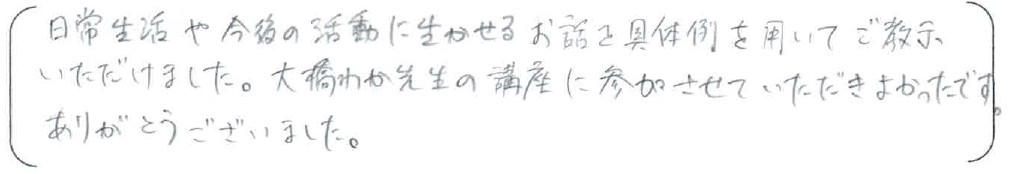 日常生活や今後の活動に生かせるお話を具体例を用いてご教示
いただけました。大橋わか先生の講座に参加させていただきよかったです。
ありがとうございました。